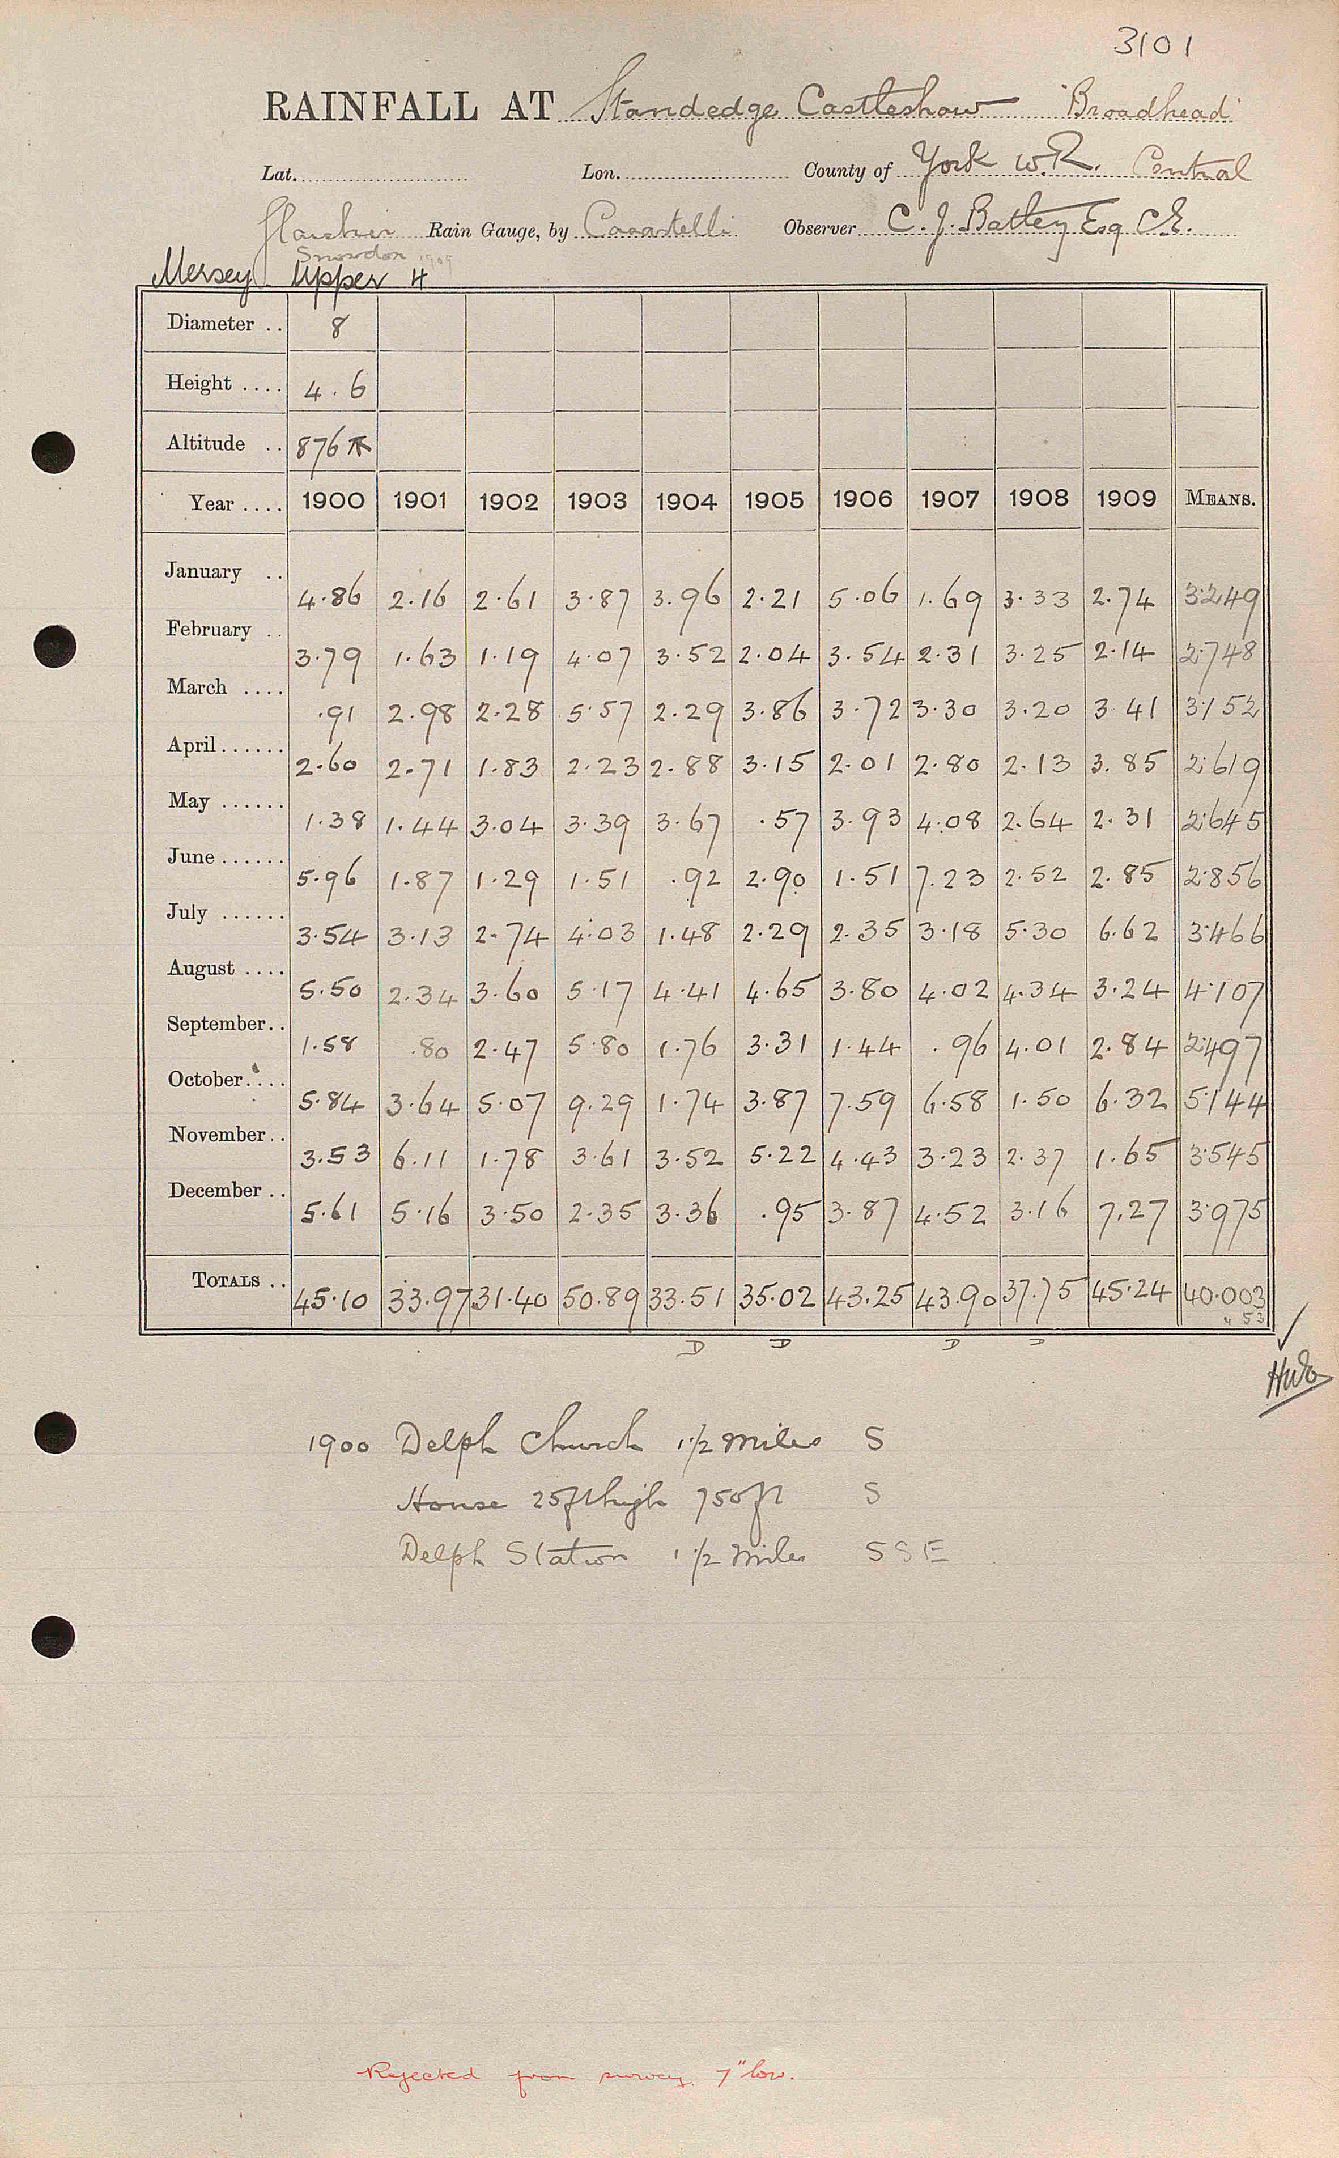 3101
RAINFALL AT Standedge Castleshaw 'Broadhead'
Lat. Lon. County of York W.R. Central
Glaisher Rain Gauge, by Casartelli Observer C. J. Batley Esq C.E.
Snowdon 1909
Mersey Upper 4
Diameter .. 8
Height .... 4.6
Altitude .. 876
Year .... 1900 1901 1902 1903 1904 1905 1906 1907 1908 1909 MEANS.
January .. 4.86 2.16 2.61 3.87 3.96 2.21 5.06 1.69 3.33 2.74 3.249
February .. 3.79 1.63 1.19 4.07 3.52 2.04 3.54 2.31 3.25 2.14 2.748
March .... .91 2.98 2.28 5.57 2.29 3.86 3.72 3.30 3.20 3.41 3.152
April ...... 2.60 2.71 1.83 2.23 2.88 3.15 2.01 2.80 2.13 3.85 2.619
May ...... 1.38 1.44 3.04 3.39 3.67 .57 3.93 4.08 2.64 2.31 2.645
June ...... 5.96 1.87 1.29 1.51 .92 2.90 1.51 7.23 2.52 2.85 2.856
July ...... 3.54 3.13 2.74 4.03 1.48 2.29 2.35 3.18 5.30 6.62 3.466
August .... 5.50 2.34 3.60 5.17 4.41 4.65 3.80 4.02 4.34 3.24 4.107
September.. 1.58 .80 2.47 5.80 1.76 3.31 1.44 .96 4.01 2.84 2.497
October.... 5.84 3.64 5.07 9.29 1.74 3.87 7.59 6.58 1.50 6.32 5.144
November.. 3.53 6.11 1.78 3.61 3.52 5.22 4.43 3.23 2.37 1.65 3.545
December .. 5.61 5.16 3.50 2.35 3.36 .95 3.87 4.52 3.16 7.27 3.975
TOTALS .. 45.10 33.97 31.40 50.89 33.51 35.02 43.25 43.90 37.75 45.24 40.003
D D D D
1900 Delph Church 1 1/2 miles S
House 25ft high 750ft S
Delph Station 1 1/2 miles SSE
Rejected from survey. 7" low.